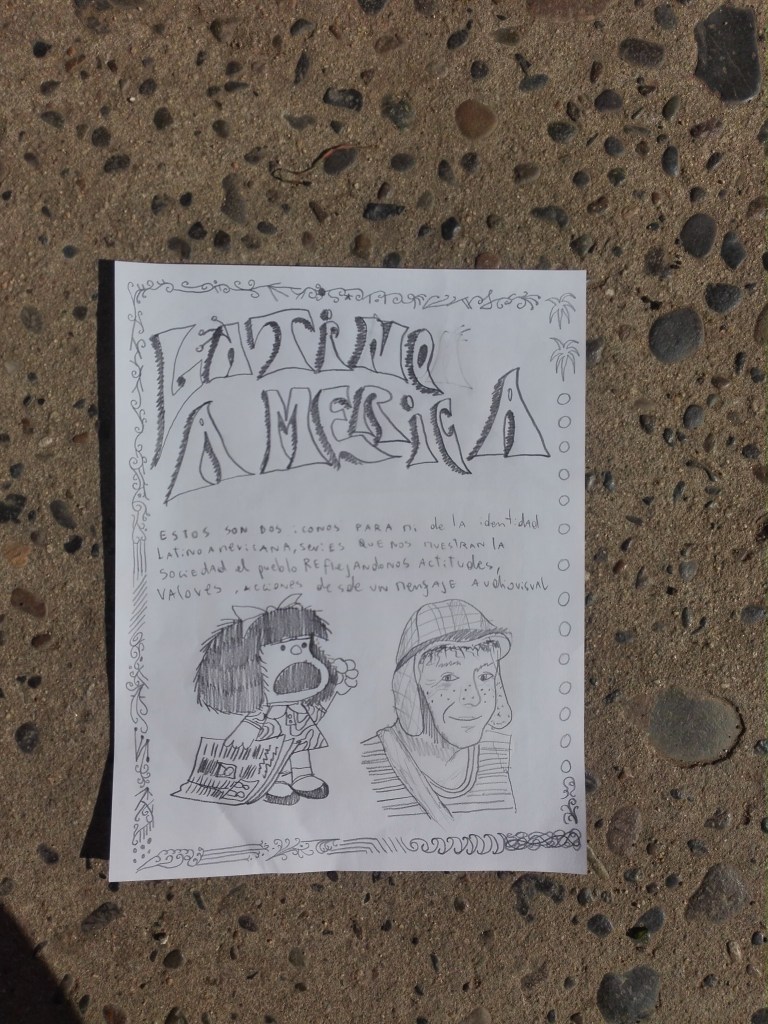 LATINO
AMERICA
ESTOS SON DOS iconos PARA mi de la identidad
LATINOAMERICANA, SERiES QUE NOS MUESTRAN LA
SOCIEDAD el pueblo REFLEJANDONOS ACTITUDES,
VALORES, ACCIONES desde un MENSAJE AUDIOVISUAL